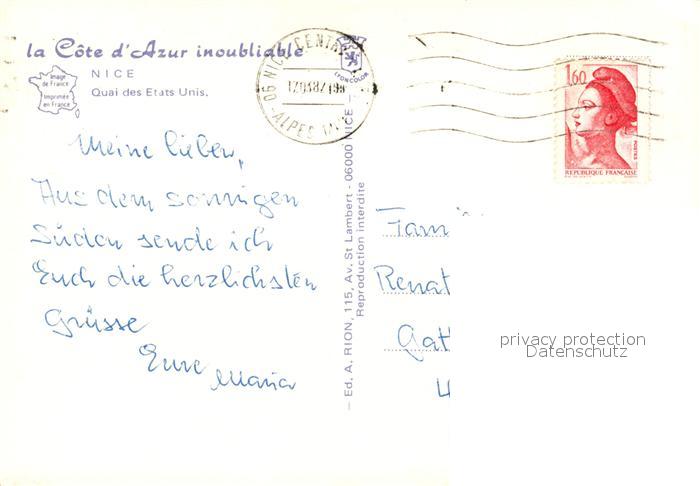 la Côte d'Azur inoubliable
NICE
Quai des Etats Unis.
Image
de France
Imprimée
en France
LYONCOLOR
06 NICE CENTRAL
ALPES
1,60
POSTES
REPUBLIQUE FRANÇAISE
Meine lieben,
Aus dem sonnigen
Süden sende ich
Euch die herzlichsten
Grüsse
Eure
Maria
— Ed. A. RION, 115, Av. St Lambert - 06000 NICE -
Reproduction interdite
Fam
Renat
Gatt
privacy protection
Datenschutz